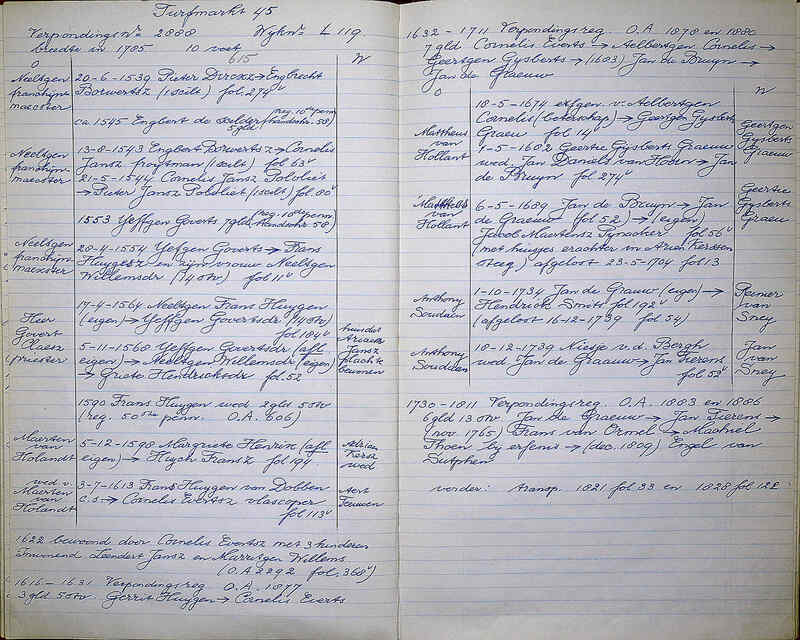 Turfmarkt 45
Verpondings No. 2888 Wyk No. L 119.
breedte in 1785 10 voet
O 615 W
Neeltgen franchyn maeester
20-6-1539 Pieter Dircsz → Engbrecht
Borwertsz (1 scilt) fol. 274v
ca 1545 Engbert de 5 gld. (reg. 10de penn. handschr. 58)
Neeltgen franchyn maeester
13-8-1543 Engbert Borwertsz → Cornelis
Jansz (1 scilt) fol 63v
21-5-1544 Cornelis Jansz
→ Pieter Jansz (1 scilt) fol. 80v
1553 Yeffgen Goverts 7 gld (reg. 10de penn. handschr. 58)
Neeltgen franchyn maeester
28-4-1554 Yeffgen Goverts → Frans
Huygesz en zijn vrouw Neeltgen
Willemsdr (14 stv) fol 11v
Hier Govert Claesz priester
17-4-1564 Neeltgen Frans Huygen
(eigen) → Yeffgen Govertsdr (14 stv)
fol 184v
5-11-1568 Yeffgen Govertsdr (afl.
eigen) → Neeltgen Willemdr (eigen)
→ Griete Hendricksdr fol. 52
huus dat Ariaen Jansz plach te bewonen
1590 Frans Huygen wed. 2 gld. 5 stv
(reg. 50ste penn. O.A. 606)
Maerten van Holandt
5-12-1598 Margriete Henrix (afl
eigen) → Huych Fransz fol 194
Adrian wed
wed v. Maerten van Holandt
3-7-1613 Frans Huygen van Dobben
c.s. → Cornelis Evertsz vlascoper
fol 113v
Aert Teunen
1622 bewoond door Cornelis Evertsz met 3 kinderen
Inwonend Leendert Jansz en Marritgen Willems
(O.A 2292 fol. 368v)
1616 – 1631 Verpondingsreg. O.A. 1877
3 gld 5 stv Gerrit Huygen → Cornelis Everts
1632 – 1711 Verpondingsreg. O.A 1878 en 1880
7 gld Cornelis Everts → Aelbertgen Cornelis →
Geertgen Gysberts → (1683) Jan de Bruyn →
Jan de Graeuw
O W
Mattheus van Hollant
18-5-1674 erfgen. v. Aelbertgen
Cornelis (boterschap) → Geertgen Gysberts
Graeu fol 14v
Geertgen Gysberts Graeuw
1-5-1682 Geertie Gysberts Graeuw
wed. Jan Daniels van Hoorn → Jan
de Bruyn fol 274v
Mattheus van Hollant
6-5-1689 Jan de Bruyn → Jan
de Graeuw fol 52) → (eigen)
Jacob Maertensz Pynacker fol 56v
(met huisje erachter in Arien Kerssen
steeg) afgelost 23-5-1704 fol 13
Geertie Gysberts Graeu
Anthony Soudaen
1-10-1734 Jan de Grauw (eigen) →
Hendrick Smits fol 192v
(afgelost 16-12-1739 fol 54)
Reimer van Sney
Anthony Soudaen
18-12-1739 Niesje v.d. Bergh
wed. Jan de Graauw → Jan Fierens
fol 53v
Jan van Sney
1730 – 1811 Verpondingsreg. O.A. 1883 en 1886
6 gld 13 stv Jan de Graeuw → Jan Fierens →
(nov 1765) Frans van Ormel → Machiel
Thoen by erfenis → (dec. 1809) Engel van
Zutphen
verder: transp. 1821 fol 33 en 1828 fol 122